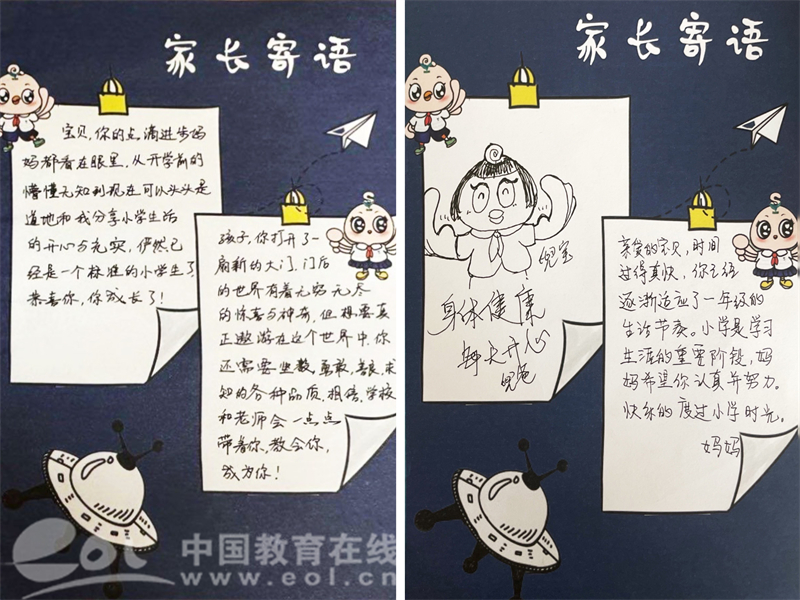 家长寄语
宝贝,你的点滴进步妈
妈都看在眼里,从开学前的
懵懂无知到现在可以头头是
道地和我分享小学生活
的开心与充实,俨然已
经是一个标准的小学生了
恭喜你,你成长了!
孩子,你打开了一
扇新的大门,门后
的世界有着无穷无尽
的惊喜与神奇,但想要真
正遨游在这个世界中,你
还需要坚毅,勇敢,善良,求
知的各种品质,相信,学校
和老师会一点点
带着你,教会你,
成为你!
家长寄语
兒宝
身体健康
每天开心
兒爸
亲爱的宝贝,时间
过得真快,你已经
逐渐适应了一年级的
生活节奏。小学是学习
生涯的重要阶段,妈
妈希望你认真并努力。
快乐的度过小学时光。
妈妈
eol 中国教育在线
www.eol.cn